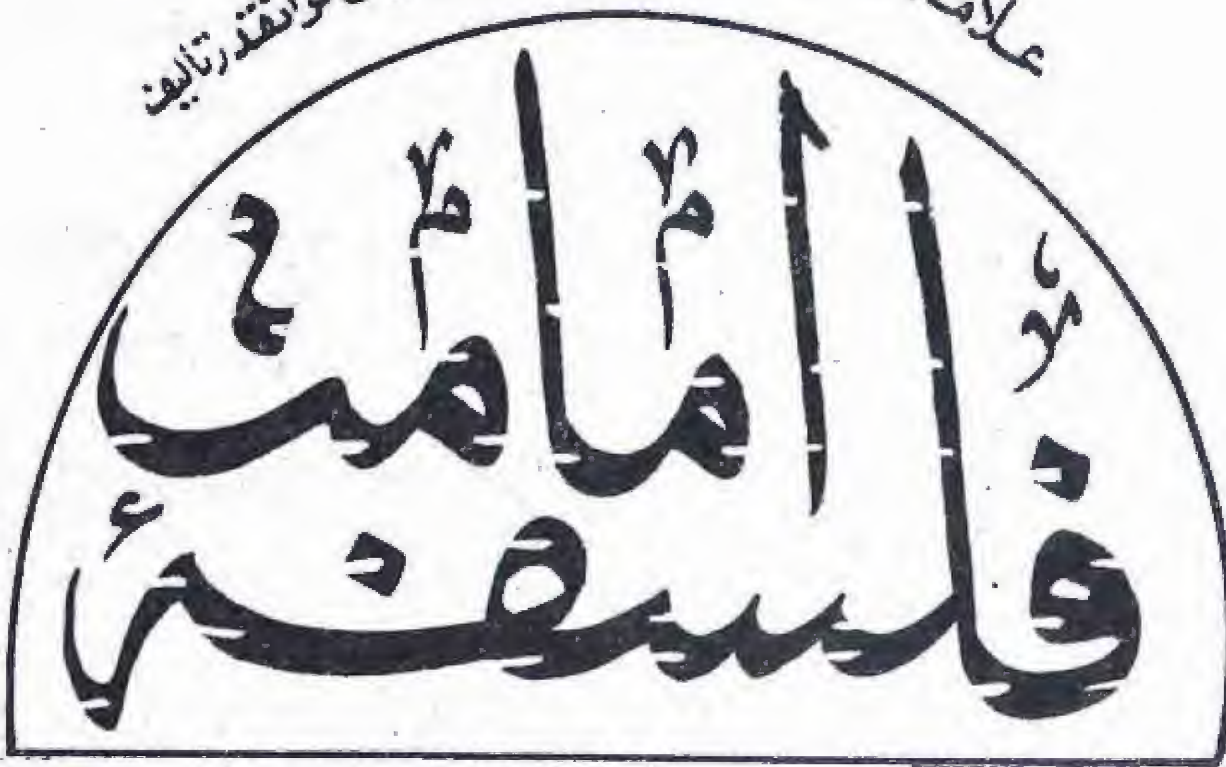 علامہ گرانقدر تالیف
فلسفۂ امامت